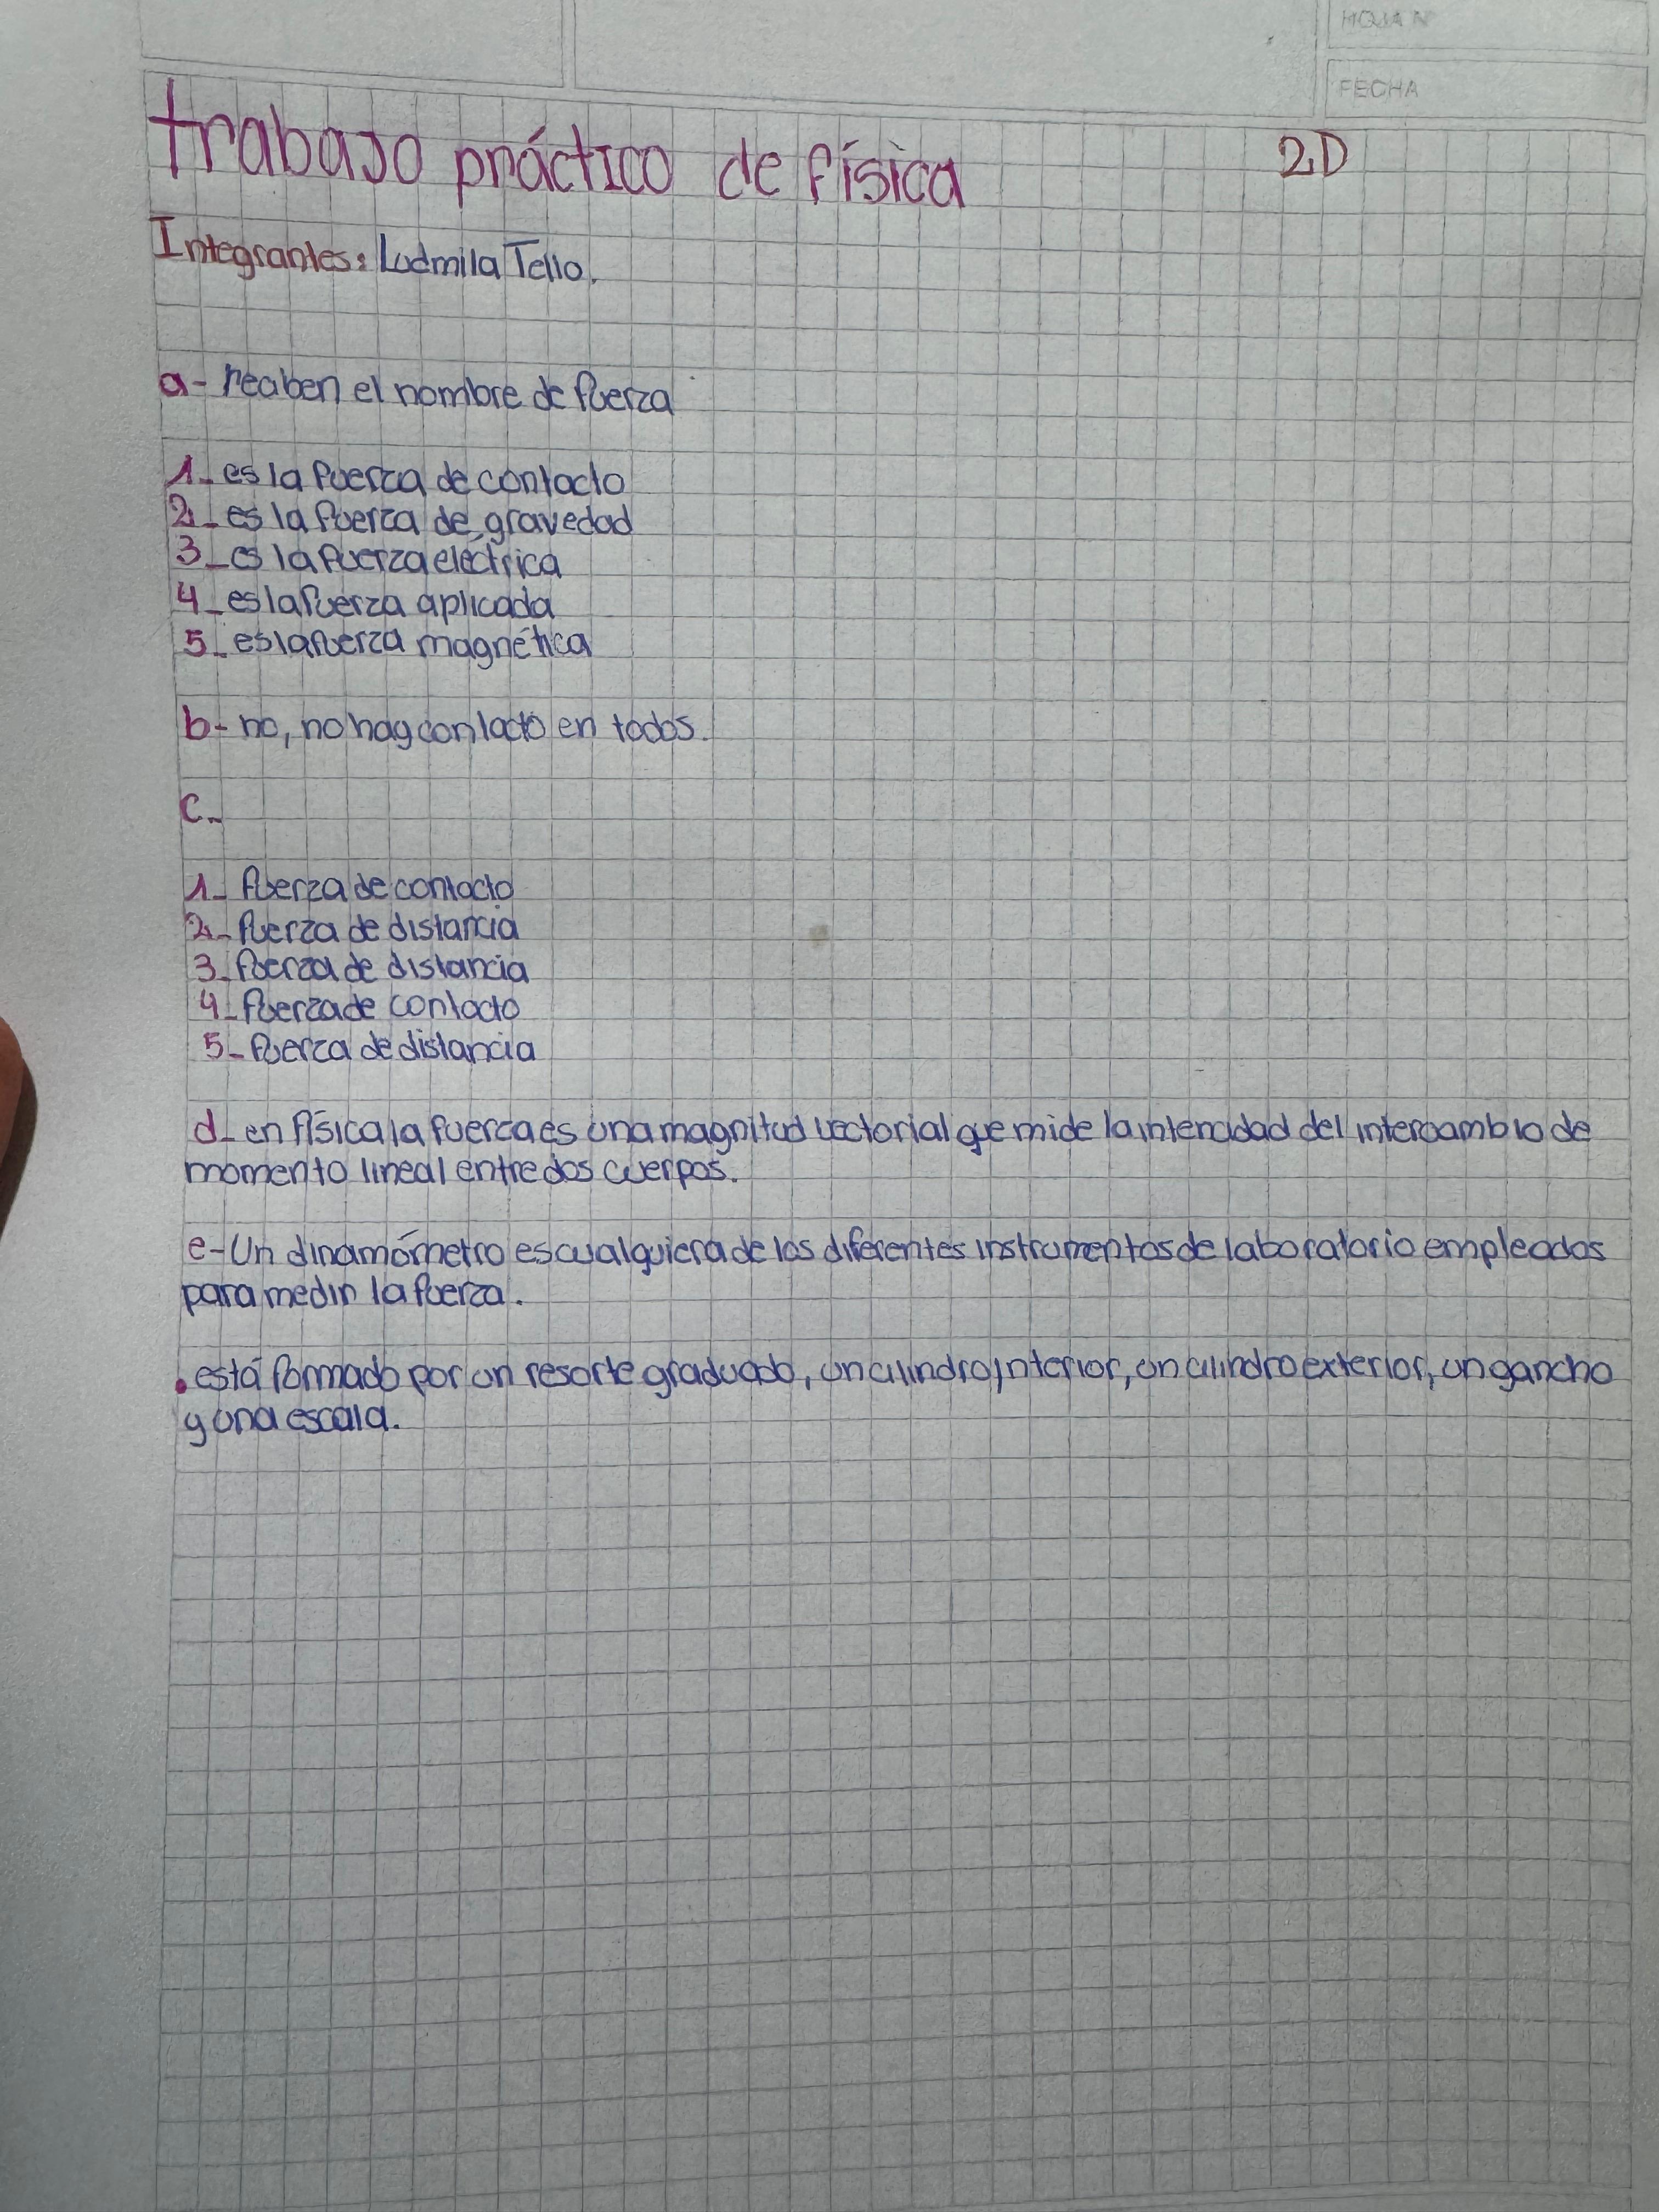 HOJA N
FECHA
trabajo práctico de física 2D
Integrantes: Ludmila Tello.
a- reciben el nombre de fuerza
1- es la fuerza de contacto
2- es la fuerza de gravedad
3- es la fuerza eléctrica
4- es la fuerza aplicada
5- es la fuerza magnética
b- no, no hay contacto en todos.
c-
1- fuerza de contacto
2- fuerza de distancia
3- fuerza de distancia
4- fuerza de contacto
5- fuerza de distancia
d- en física la fuerza es una magnitud vectorial que mide la intencidad del intercambio de
momento lineal entre dos cuerpos.
e- Un dinamómetro es cualquiera de los diferentes instrumentos de laboratorio empleados
para medir la fuerza.
• está formado por un resorte graduado, un cilindro interior, un cilindro exterior, un gancho
y una escala.